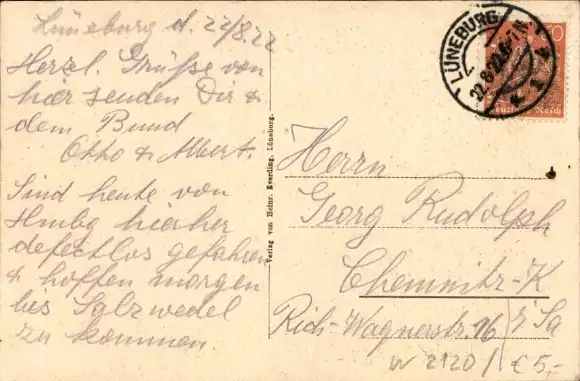 Lüneburg d. 22/8.22
Herzl. Grüße von
hier senden Dir &
dem Bund
Otto & Albert.
Sind heute von
Hmbg hierher
defectlos gefahren
& hoffen morgen
bis Salzwedel
zu kommen.
Verlag von Heinr. Everding, Lüneburg.
LÜNEBURG
22.8.22
Deutsches Reich
Herrn
Georg Rudolph
Chemnitz-K
Rich-Wagnerstr. 16 i/Sa
W 2120 / € 5,-